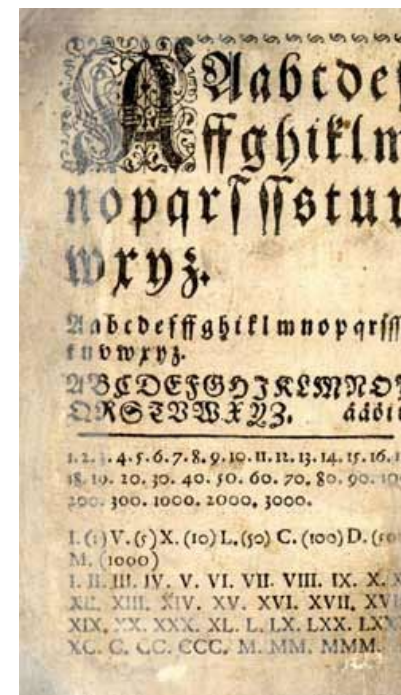 A Aabcdef
ffghiklm
nopqrſſſstur
wxyz.
Aabcdefffghiklmnopqrſſſ
tuvwxyz.
ABCDEFGHJKLMNOP
QRSTVWXYZ. áäöü
1. 2. 3. 4. 5. 6. 7. 8. 9. 10. 11. 12. 13. 14. 15. 16. 1
18. 19. 20. 30. 40. 50. 60. 70. 80. 90. 100
200. 300. 1000. 2000. 3000.
I. (1) V. (5) X. (10) L. (50) C. (100) D. (500
M. (1000)
I. II. III. IV. V. VI. VII. VIII. IX. X. X
XII. XIII. XIV. XV. XVI. XVII. XVI
XIX. XX. XXX. XL. L. LX. LXX. LXX
XC. C. CC. CCC. M. MM. MMM.